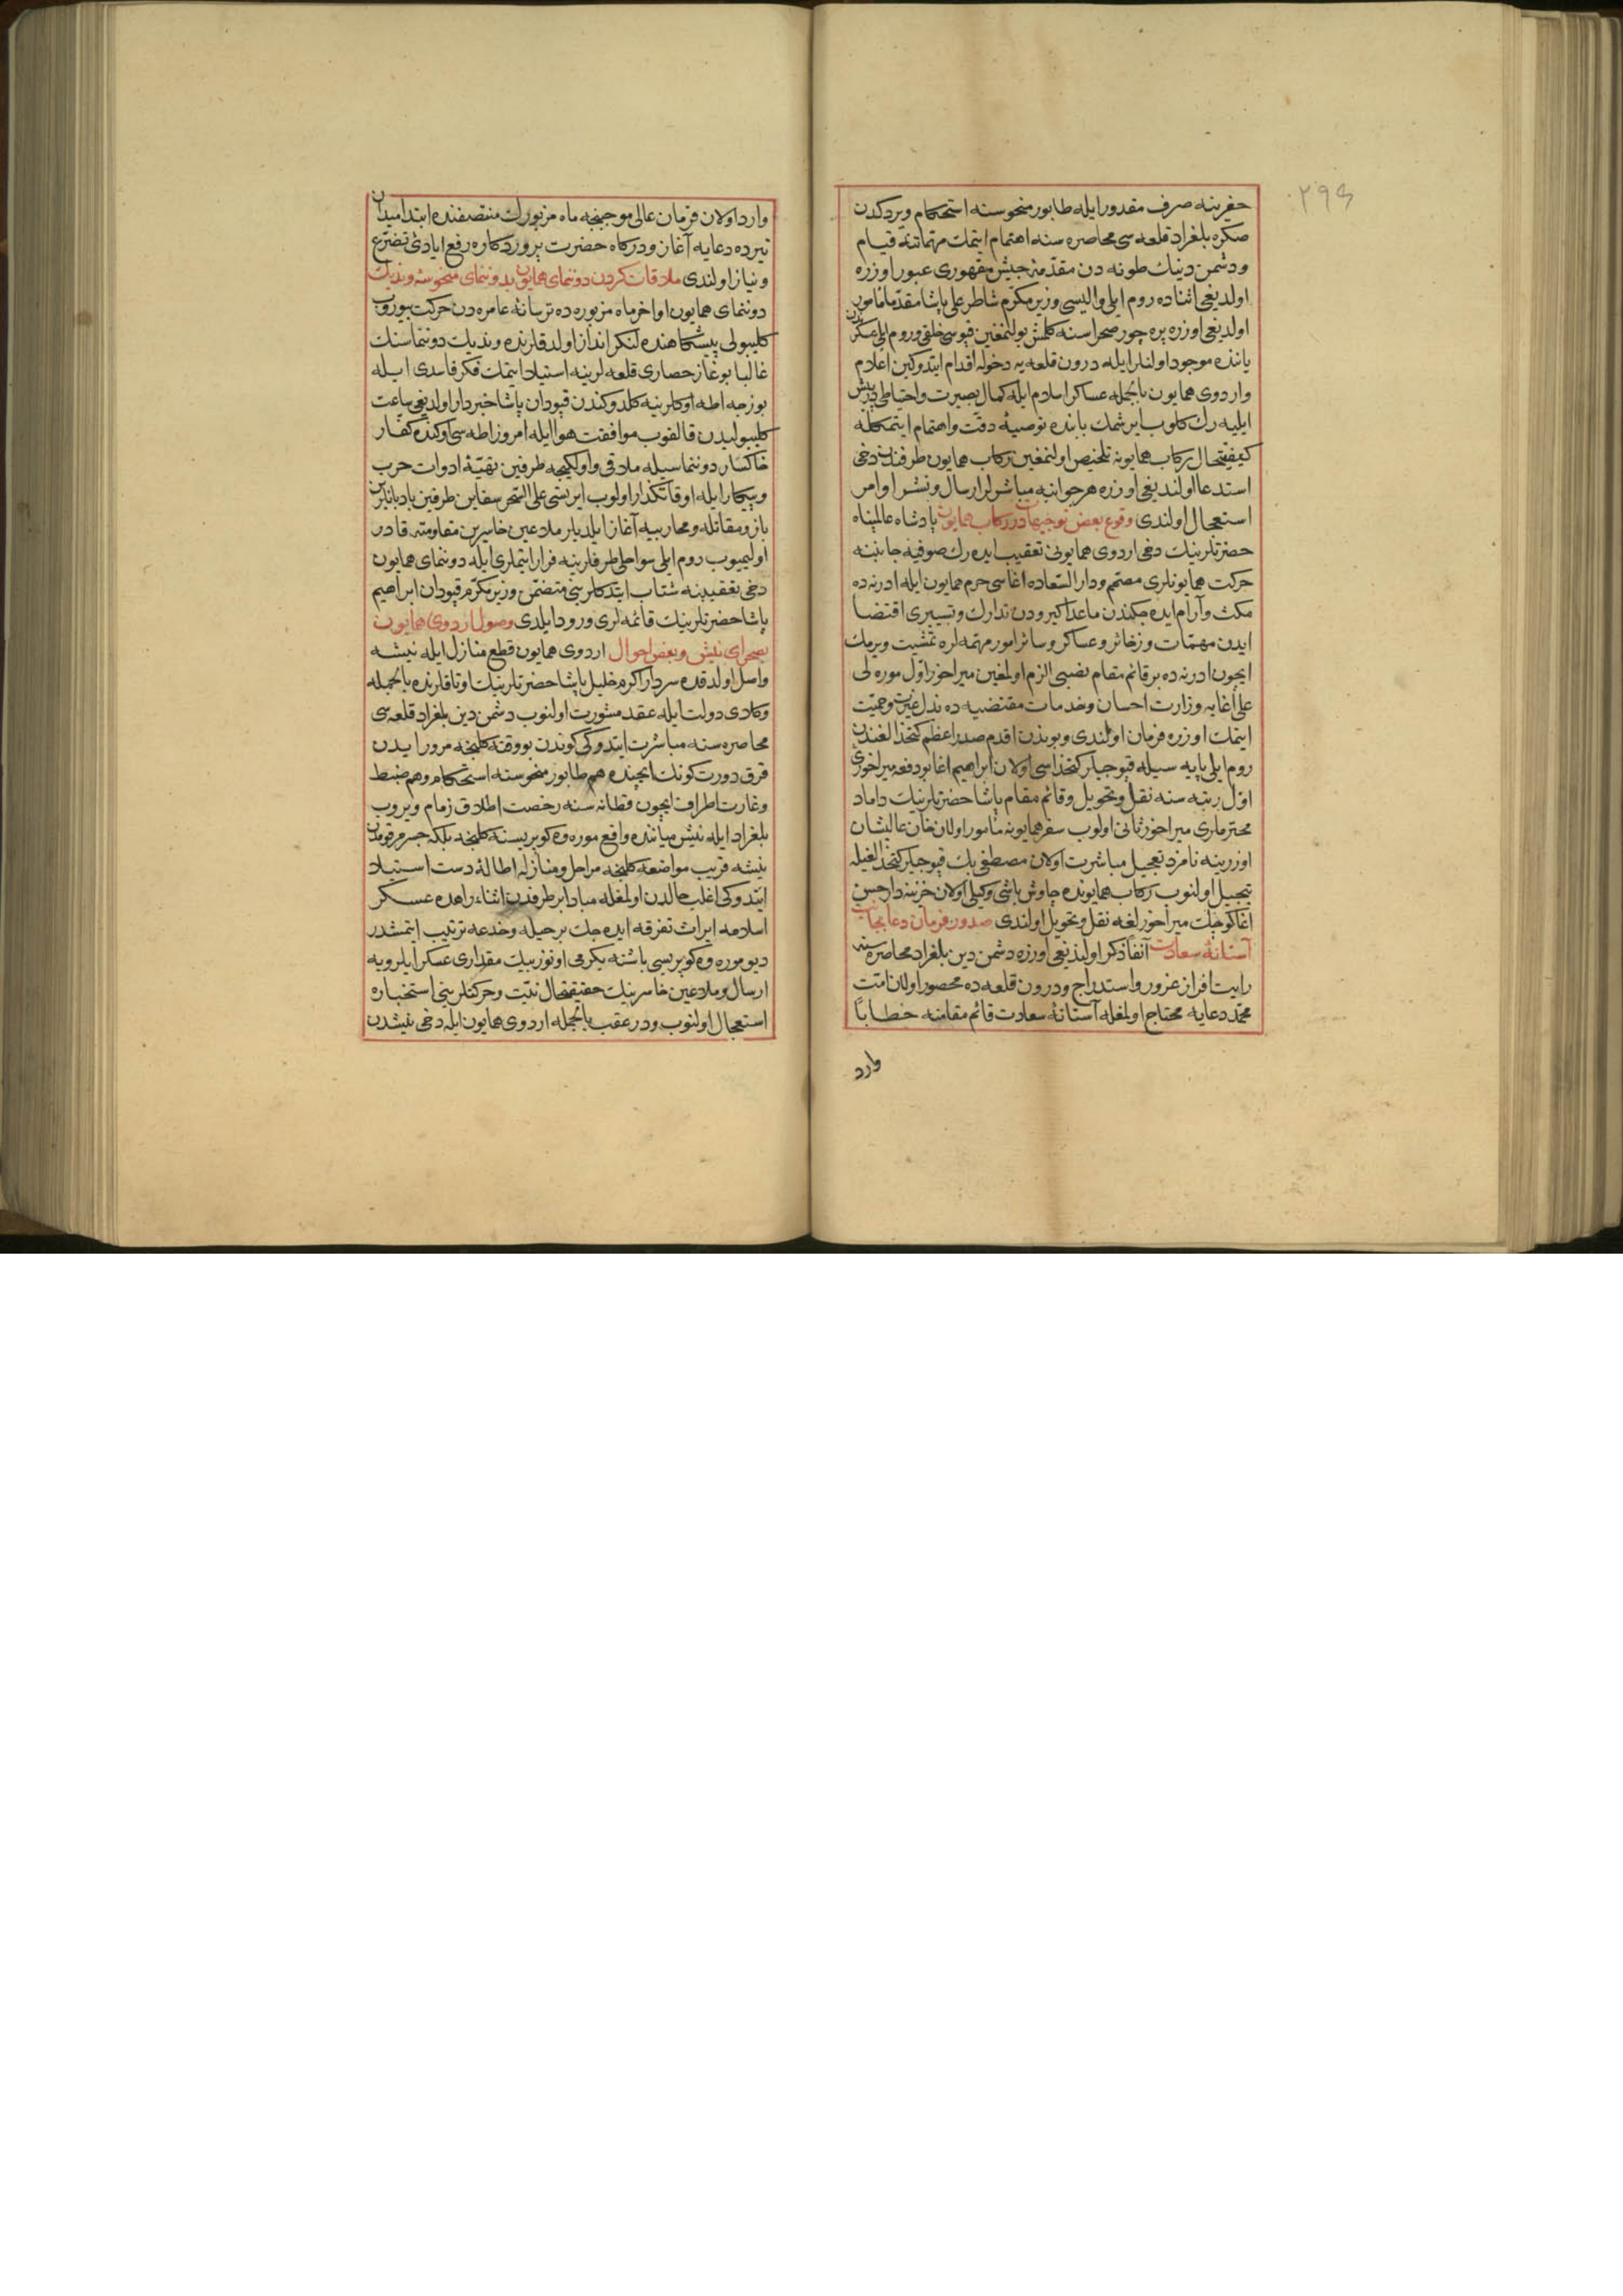 ۲۹۶
حفرینه صرف مقدور ایله طابور منحوسنه استحکام ویردکدن
صکره بلغراد قلعه سی محاصره سنه اهتمام ایتمك مهماتنه قیام
ودشمن دینك طونه دن مقدمۀ جیش مقهوری عبور اوزره
اولدیغی اثناده روم ایلی والیسی وزیر مکرم شاطر علی پاشا مقدما مأمور
اولدیغی اوزره پره چور صحراسنه کلمش بولنمغین قپوسی خلقی وروم ایلی عسکرندن
یاننده موجود اولنلر ایله درون قلعه یه دخوله اقدام ایتدوکین اعلام
واردوی همایون بالجمله عساکر اسلام ایله کمال بصیرت واحتیاطی درپیش
ایلیه رك کلوب ایرشمك بابنده توصیۀ دقت واهتمام ایتمکله
کیفیتحال رکاب همایونه تلخیص اولنمغین رکاب همایون طرفندن دخی
استدعا اولندیغی اوزره هر جوانبه مباشرلر ارسال ونشر اوامر
استعجال اولندی وقوع بعض توجیهات در رکاب همایون پادشاه عالمپناه
حضرتلرینك دخی اردوی همایونی تعقیب ایده رك صوفیه جانبنه
حرکت همایونلری مصمم ودار السعاده اغاسی حرم همایون ایله ادرنه ده
مکث وآرام ایده جکندن ماعدا کیرودن تدارك وتسییری اقتضا
ایدن مهمات وذخائر وعساکر وسائر امور مهمه لره تمشیت ویرمك
ایچون ادرنه ده بر قائم مقام نصبی الزم اولمغین میراخور اول موره لی
علی أغایه وزارت احسان وخدمات مقتضیه ده بذل غیرت وحمیت
ایتمك اوزره فرمان اولندی وبوندن اقدم صدر اعظم کتخدالغندن
روم ایلی پایه سیله قپوجیلر کتخداسی اولان ابراهیم اغا بودفعه میراخوری
اول رتبه سنه نقل وتحویل وقائم مقام پاشا حضرتلرینك داماد
محترملری میراخور ثانی اولوب سفر همایونه مأمور اولان خان عالیشان
اوزرینه نامزد تعجیل مباشرت اولان مصطفی بك قپوجیلر کتخدالغیله
تبجیل اولنوب رکاب همایونده چاوش باشی وکیلی اولان خزینه دار حسن
اغا کوچك میراخورلغه نقل وتحویل اولندی صدور فرمان دعا بجانب
آستانۀ سعادت آنفا ذکر اولندیغی اوزره دشمن دین بلغراد محاصره سنه
رایت افراز غرور واستدراج ودرون قلعه ده محصور اولان امت
محمد دعایه محتاج اولمغله آستانۀ سعادت قائم مقامنه خطابًا
وارد
وارد اولان فرمان عالی موجبنجه ماه مزبورك منتصفنده ابتدا میدان
تیرده دعایه آغاز ودرکاه حضرت پروردکاره رفع ایادئ تضرع
ونیاز اولندی ملاقات کردن دوننمای همایون بدوننمای منحوسۀ وندیك
دوننمای همایون اواخر ماه مزبورده ترسانۀ عامره دن حرکت بیوروب
کلیبولی پیشکاهنده لنکر انداز اولدقلرنده وندیك دوننماسنك
غالبا بوغاز حصاری قلعه لرینه استیلا ایتمك فکر فاسدی ایله
بوزجه اطه اوکلرینه کلدوکندن قپودان پاشا خبردار اولدیغی ساعت
کلیبولیدن قالقوب موافقت هوا ایله امروز اطه سی اوکنده کفار
خاکسار دوننماسیله ملاقی واولکیجه طرفین تهیۀ ادوات حرب
وپیکار ایله اوقاتکذار اولوب ایرتسی علی السحر سفاین طرفین بادبانلرین
باز ومقاتله ومحاربیه آغاز ایلدیلر ملاعین خاسرین مقاومته قادر
اولمیوب روم ایلی سواحلی طرفلرینه فرار ایتملری ایله دوننمای همایون
دخی تعقیبینه شتاب ایتدکلرینی متضمن وزیر مکرم قپودان ابراهیم
پاشا حضرتلرینك قائمه لری ورود ایلدی وصول اردوی همایون
بصحرای نیش وبعض احوال اردوی همایون قطع منازل ایله نیشه
واصل اولدقده سردار اکرم خلیل پاشا حضرتلرینك اوتاقلرنده بالجمله
وکلای دولت ایله عقد مشورت اولنوب دشمن دین بلغراد قلعه سی
محاصره سنه مباشرت ایتدوکی کوندن بو وقته کلنجه مرور ایدن
قرق دورت کونك ایچنده هم طابور منحوسنه استحکام وهم ضبط
وغارت اطراف ایچون قطانه سنه رخصت اطلاق زمام ویروب
بلغراد ایله نیش میاننده واقع موره وه کوپریسنه کلنجه بلکه جسر مرقومدن
نیشه قریب مواضعه کلنجه مراحل ومنازله اطالۀ دست استیلا
ایتدوکی اغلب حالدن اولمغله مبادا بر طرفدن اثناء راهده عسکر
اسلامه ایراث تفرقه ایده جك بر حیله وخدعه ترتیب ایتمشدر
دیو موره وه کوپریسی باشنه یکرمی اوتوز بیك مقداری عسکر ایلرویه
ارسال وملاعین خاسرینك حقیقتحال نیت وحرکتلرینی استخباره
استعجال اولنوب ودر عقب بالجمله اردوی همایون ایله دخی نیشدن